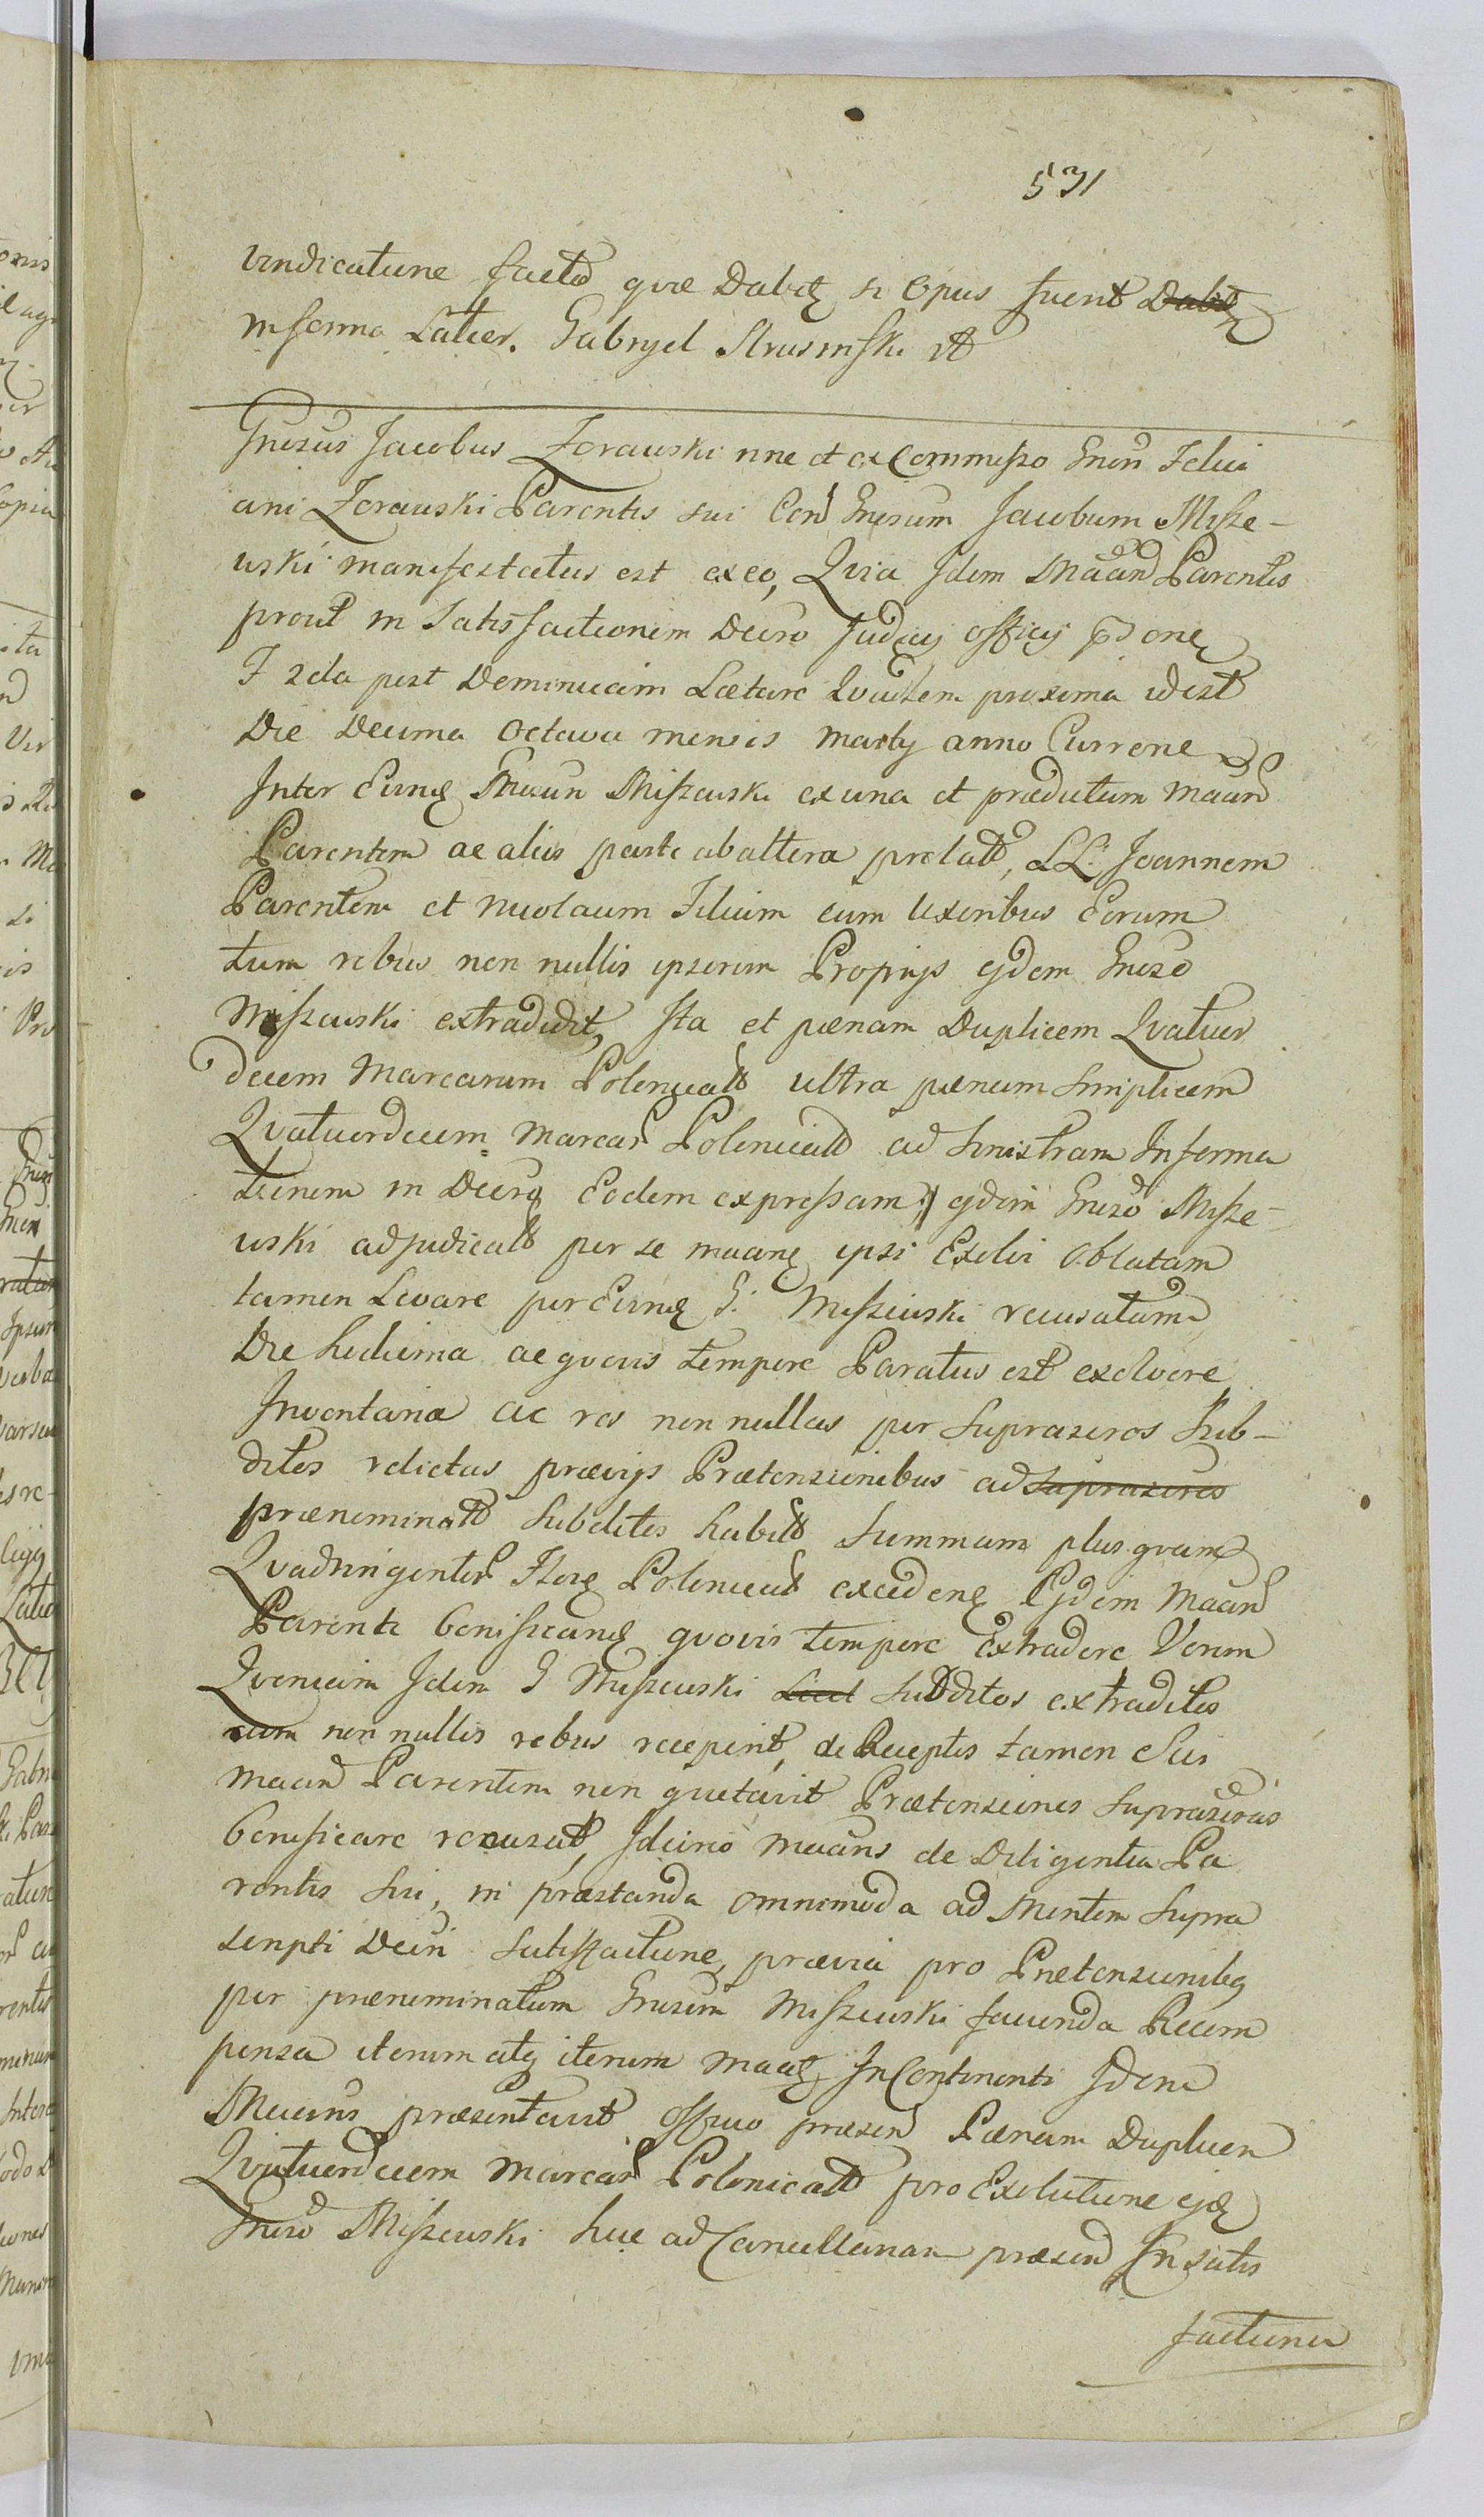 531
vindicatione facto quæ Dabit si Opus fuerit Dabit
in forma Latior. Gabryel Strusinski
Gnrsus Jacobus Zorawski nne et ex Commisso Gnri Felici
ani Zorawski Parentis sui Con Gnrsum Jacobum Misze-
wski manifestatus est ex eo, Quia Idem Maan Parentis
prout in Satisfactionem Decro Judicij officij
F 2da post Dominicam Lætare Quadem proxima id est
Die Decima Octava mensis Martij anno Curren
Inter Eund Gnrum Miszewski ex una et prædictum maan
Parentem ac aliis parte ab altera prolat, LL. Joannem
Parentem et Nicolaum Filium cum Uxoribus Eorum
tum rebus non nullis ipsorum Proprijs ejdem Gnrso
Miszewski extradidit, Ita et pænam Duplicem Quatuor
decem Marcarum Polonicall ultra pænam simplicem
Quatuordecem Marcar Polonicall ad sinistram Informa
tionem in Decro Eodem expressam, ejdem Gnrso Misze-
wski adjudicall per se maan ipsi Exolvi Oblatam
tamen Levare per Eund G. Miszewski recusatam
Die hodierna ac quovis tempore Paratus est exolvere
Inventaria ac res non nullas per Suprascros Sub-
ditos relictas prævijs Prætensionibus ad Suprascros
prænominall Subditos habill Summam plus quam
Quadringentor Flor Polonicall exceden Ejdem Maan
Parenti bonificand quovis tempore Extradere Verum
Quoniam Idem G Miszewski Licet Subditos extraditos
cum non nullis rebus receperit, de Receptis tamen Eis
maan Parentem non quietavit Prætensiones Suprascras
bonificare recusat, Idcirco maans de Diligentia Pa
rentis Sui, in præstanda omnimoda ad Mentem Supra
scripti Decri Satisfactione, prævia pro Prætensionibq
per prænominatum Gnrsum Miszewski facienda Recom
pensa iterum atq iterum maat, In Continenti Idem
Maans præsentavit officio præsen Pænam Duplicem
Quatuordecem Marcar Polonicall pro Exolutione ejd
Gnrso Miszewski huc ad Cancellariam præsen In satis
factionem